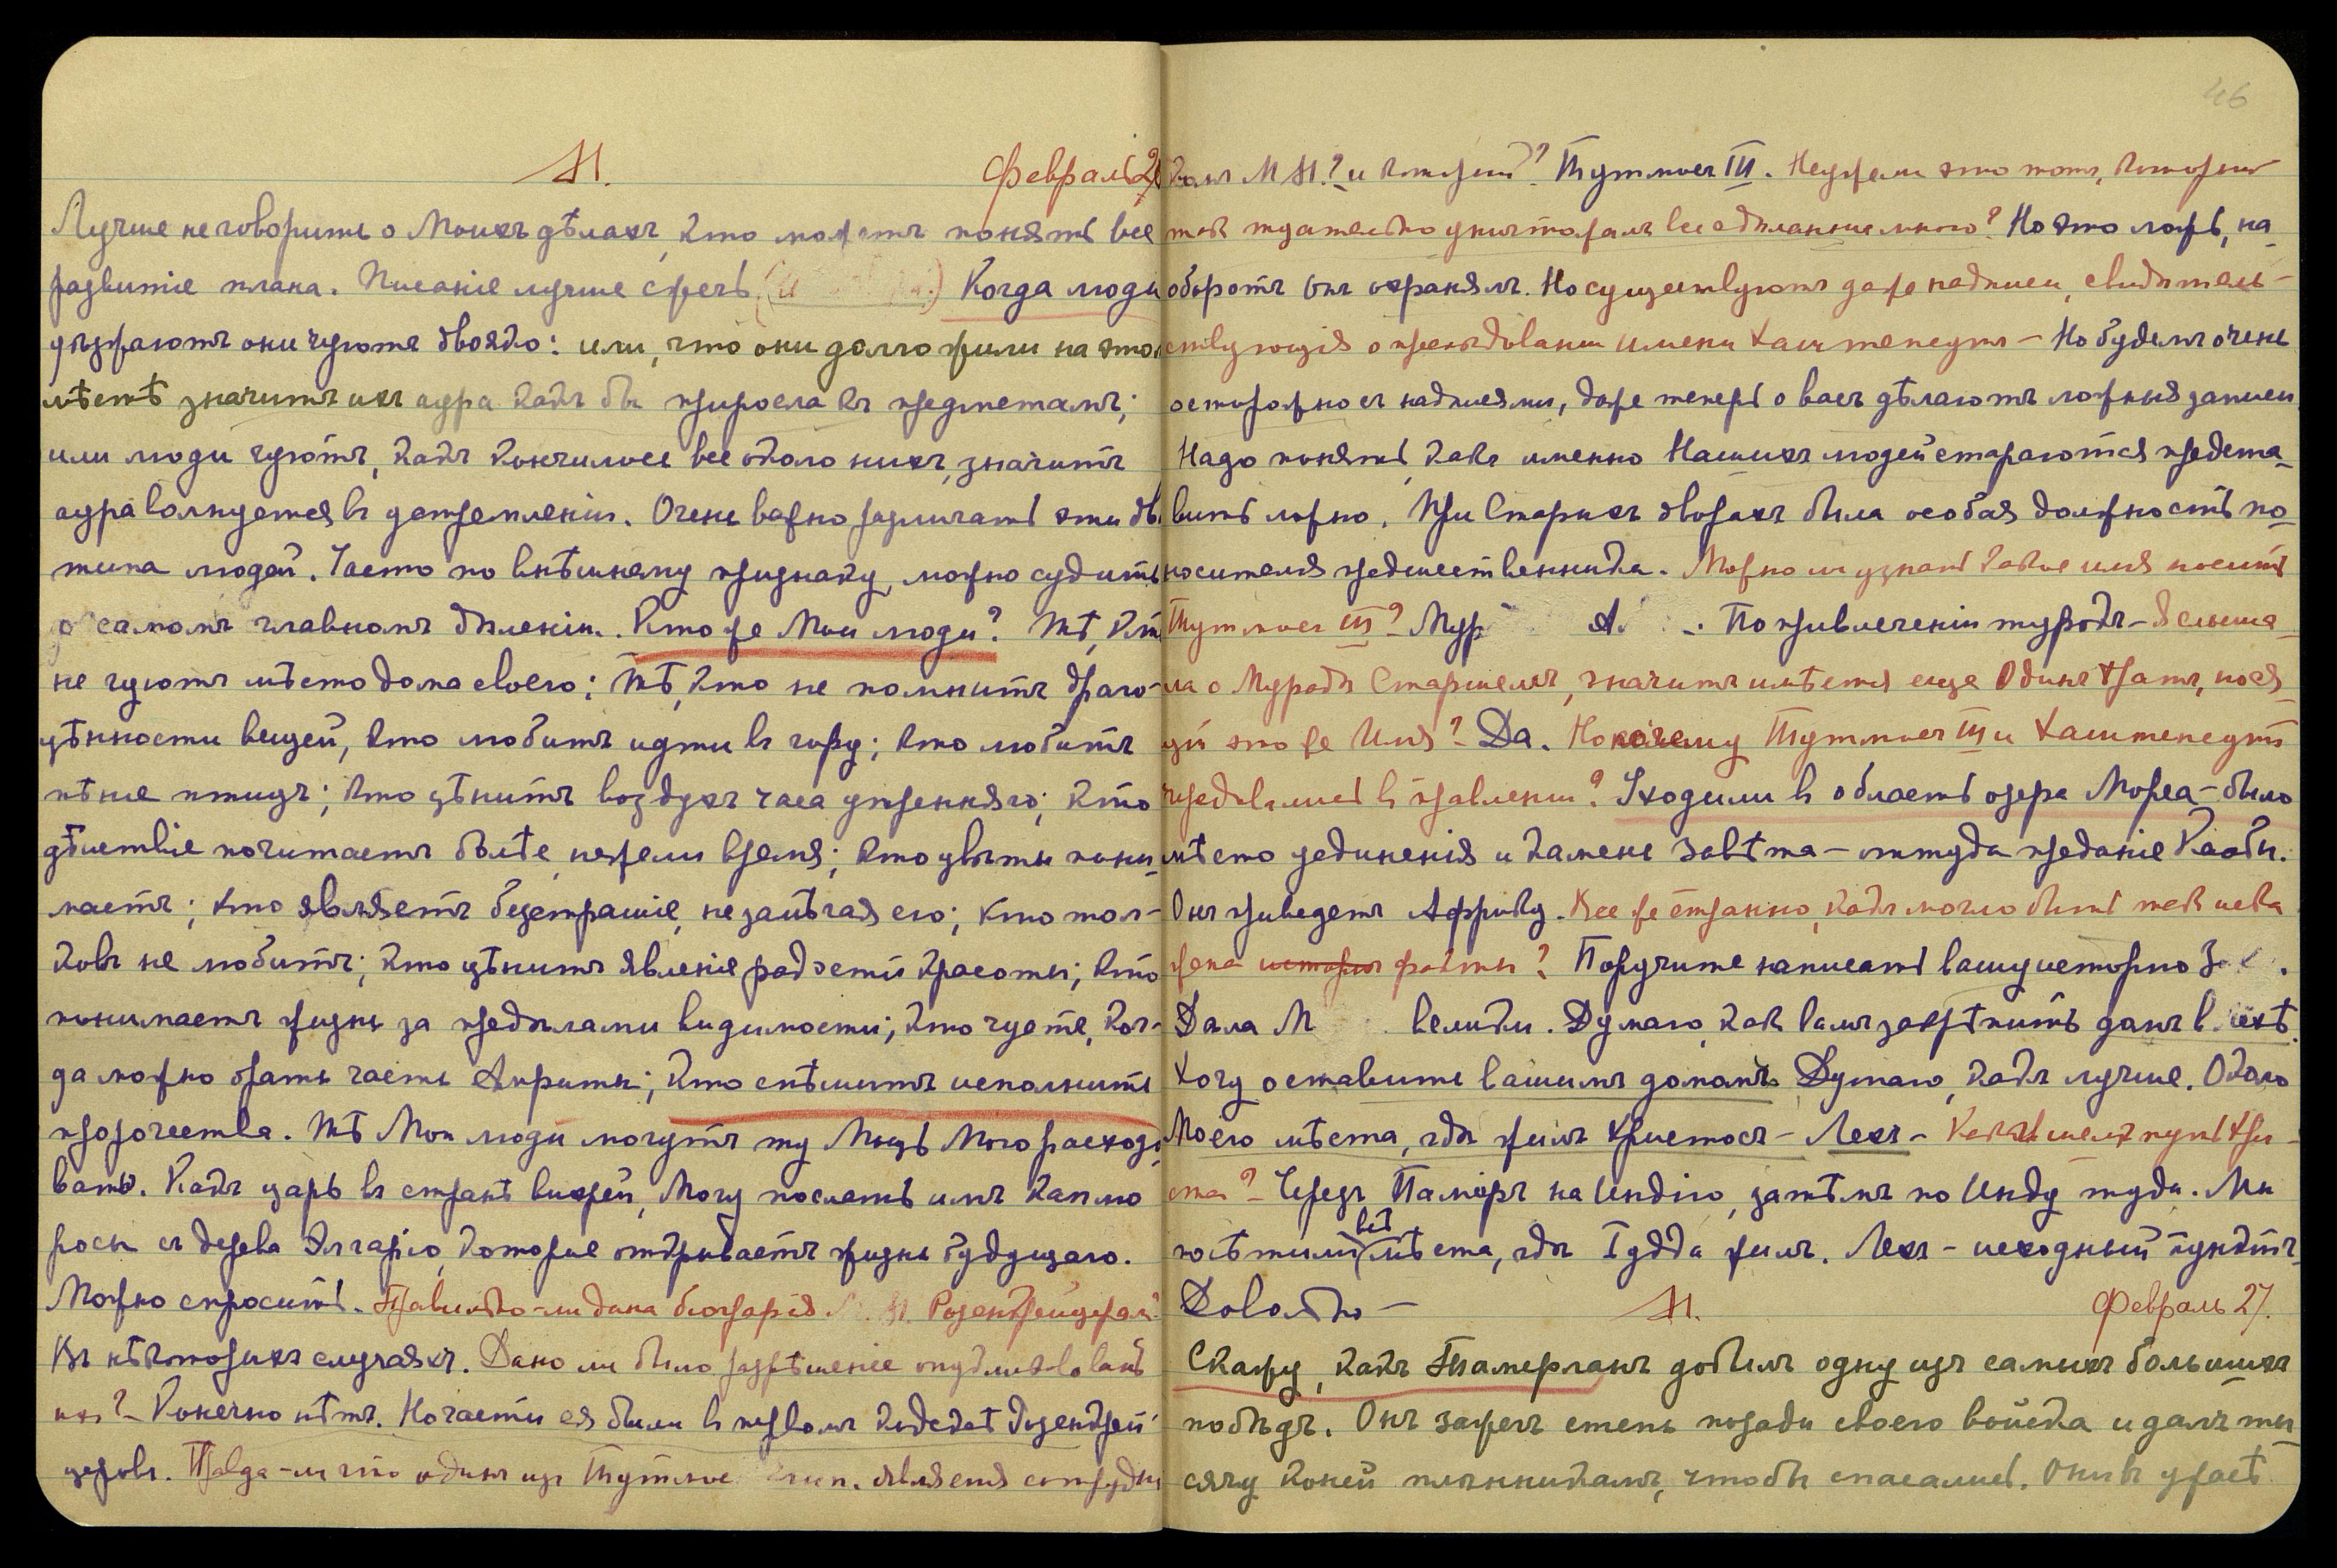 М. Февраль 2
Лучше не говорить о Моихъ дѣлахъ, кто можетъ понять все
развитіе плана. Писаніе лучше сжечь. Когда люди
уѣзжаютъ они чуютъ двояко: или, что они долго жили на этом
мѣстѣ значитъ ихъ аура какъ бы приросла къ предметамъ;
или люди чуютъ, какъ кончилось все около нихъ, значитъ
аура волнуется въ устремленіи. Очень важно различать эти дв
типа людей. Часто по внѣшнему признаку, можно судить
о самомъ главномъ дѣленіи. Кто же Мои люди? Тѣ, кт
не чуютъ мѣсто дома своего; тѣ, кто не помнитъ драго-
цѣнности вещей, кто любитъ идти въ гору; кто любитъ
пѣніе птицъ; кто цѣнитъ воздухъ часа утренняго; кто
дѣйствіе почитаетъ болѣе, нежели время; кто цвѣты пони-
маетъ; кто являетъ безстрашіе, не замѣчая его; кто тол-
ковъ не любитъ; кто цѣнитъ явленіе радости красоты; кто
понимаетъ жизнь за предѣлами видимости; кто чуетъ, ког-
да можно брать часть Амриты; кто спѣшитъ исполнить
пророчества. Тѣ Мои люди могутъ ту Мощь Мою расходо
вать. Какъ царь въ странѣ вихрей, Могу послать имъ каплю
росы съ дерева Элгаріо, которое открываетъ жизнь будущаго.
Можно спросить. Правильно-ли дана біографія Розенкрейцерам?
Въ нѣкоторыхъ случаяхъ. Дано ли было разрѣшеніе опубликовать
ихъ? - Конечно нѣтъ. Но части ея были въ первомъ кодексѣ Розенкрей-
церовъ. Правда-ли что одинъ изъ Тутмос является сотрудн
комъ М.М.? и который? Тутмосъ III. Неужели это тотъ, который
такъ тщательно уничтожалъ все сдѣланное мною? Но это ложь, на-
оборотъ онъ охранялъ. Но существуютъ даже надписи, свидѣтель-
ствующія о преслѣдованіи имени Хатшепсутъ - Но будемъ очень
осторожно съ надписями, даже теперь о васъ дѣлаютъ ложныя записи.
Надо понять, какъ именно Нашихъ людей стараются предста-
вить ложно. При Старыхъ дворахъ была особая должность по-
носителя предшественника. Можно ли узнать какое имя носитъ
Тутмосъ III? Мур А. . По привлеченіи турокъ - Я слыша-
ла о Мурадѣ Старшемъ, значитъ имѣется еще Одинъ Братъ, нося-
щій это же Имя? - Да. Но почему Тутмосъ III и Хатшепсутъ
чередовались въ правленіи? Уходили въ область озера Мореа - было
мѣсто уединенія и камень завѣта - оттуда преданіе Каабы.
Онъ приведетъ Африку. Все же странно, какъ могло быть такъ иска
жена фактъ? Поручите написать вашу исторію З .
Дѣла М велики. Думаю, какъ вамъ закрѣпить домъ въ Лехѣ.
Хочу оставить вашимъ домомъ. Думаю, какъ лучше. Около
Моего мѣста, гдѣ жилъ Христосъ - Лехъ - Какъ шелъ путь Хри-
ста? - Черезъ Памиръ на Индію, затѣмъ по Инду туда. Мы
посѣтили всѣ мѣста, гдѣ Будда жилъ. Лехъ - исходный пунктъ.
Довольно - М. Февраль 27.
Скажу, какъ Тамерланъ добылъ одну изъ самыхъ большихъ
побѣдъ. Онъ зажегъ степь позади своего войска и далъ ты-
сячу коней плѣнникамъ, чтобы спасались. Они въ ужасѣ